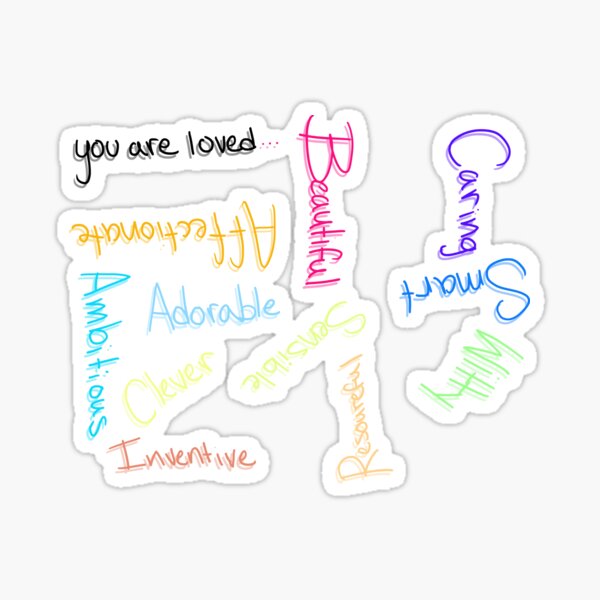 you are loved...
Beautiful
Caring
Affectionate
Smart
Ambitious
Adorable
Sensible
Witty
Clever
Resourceful
Inventive